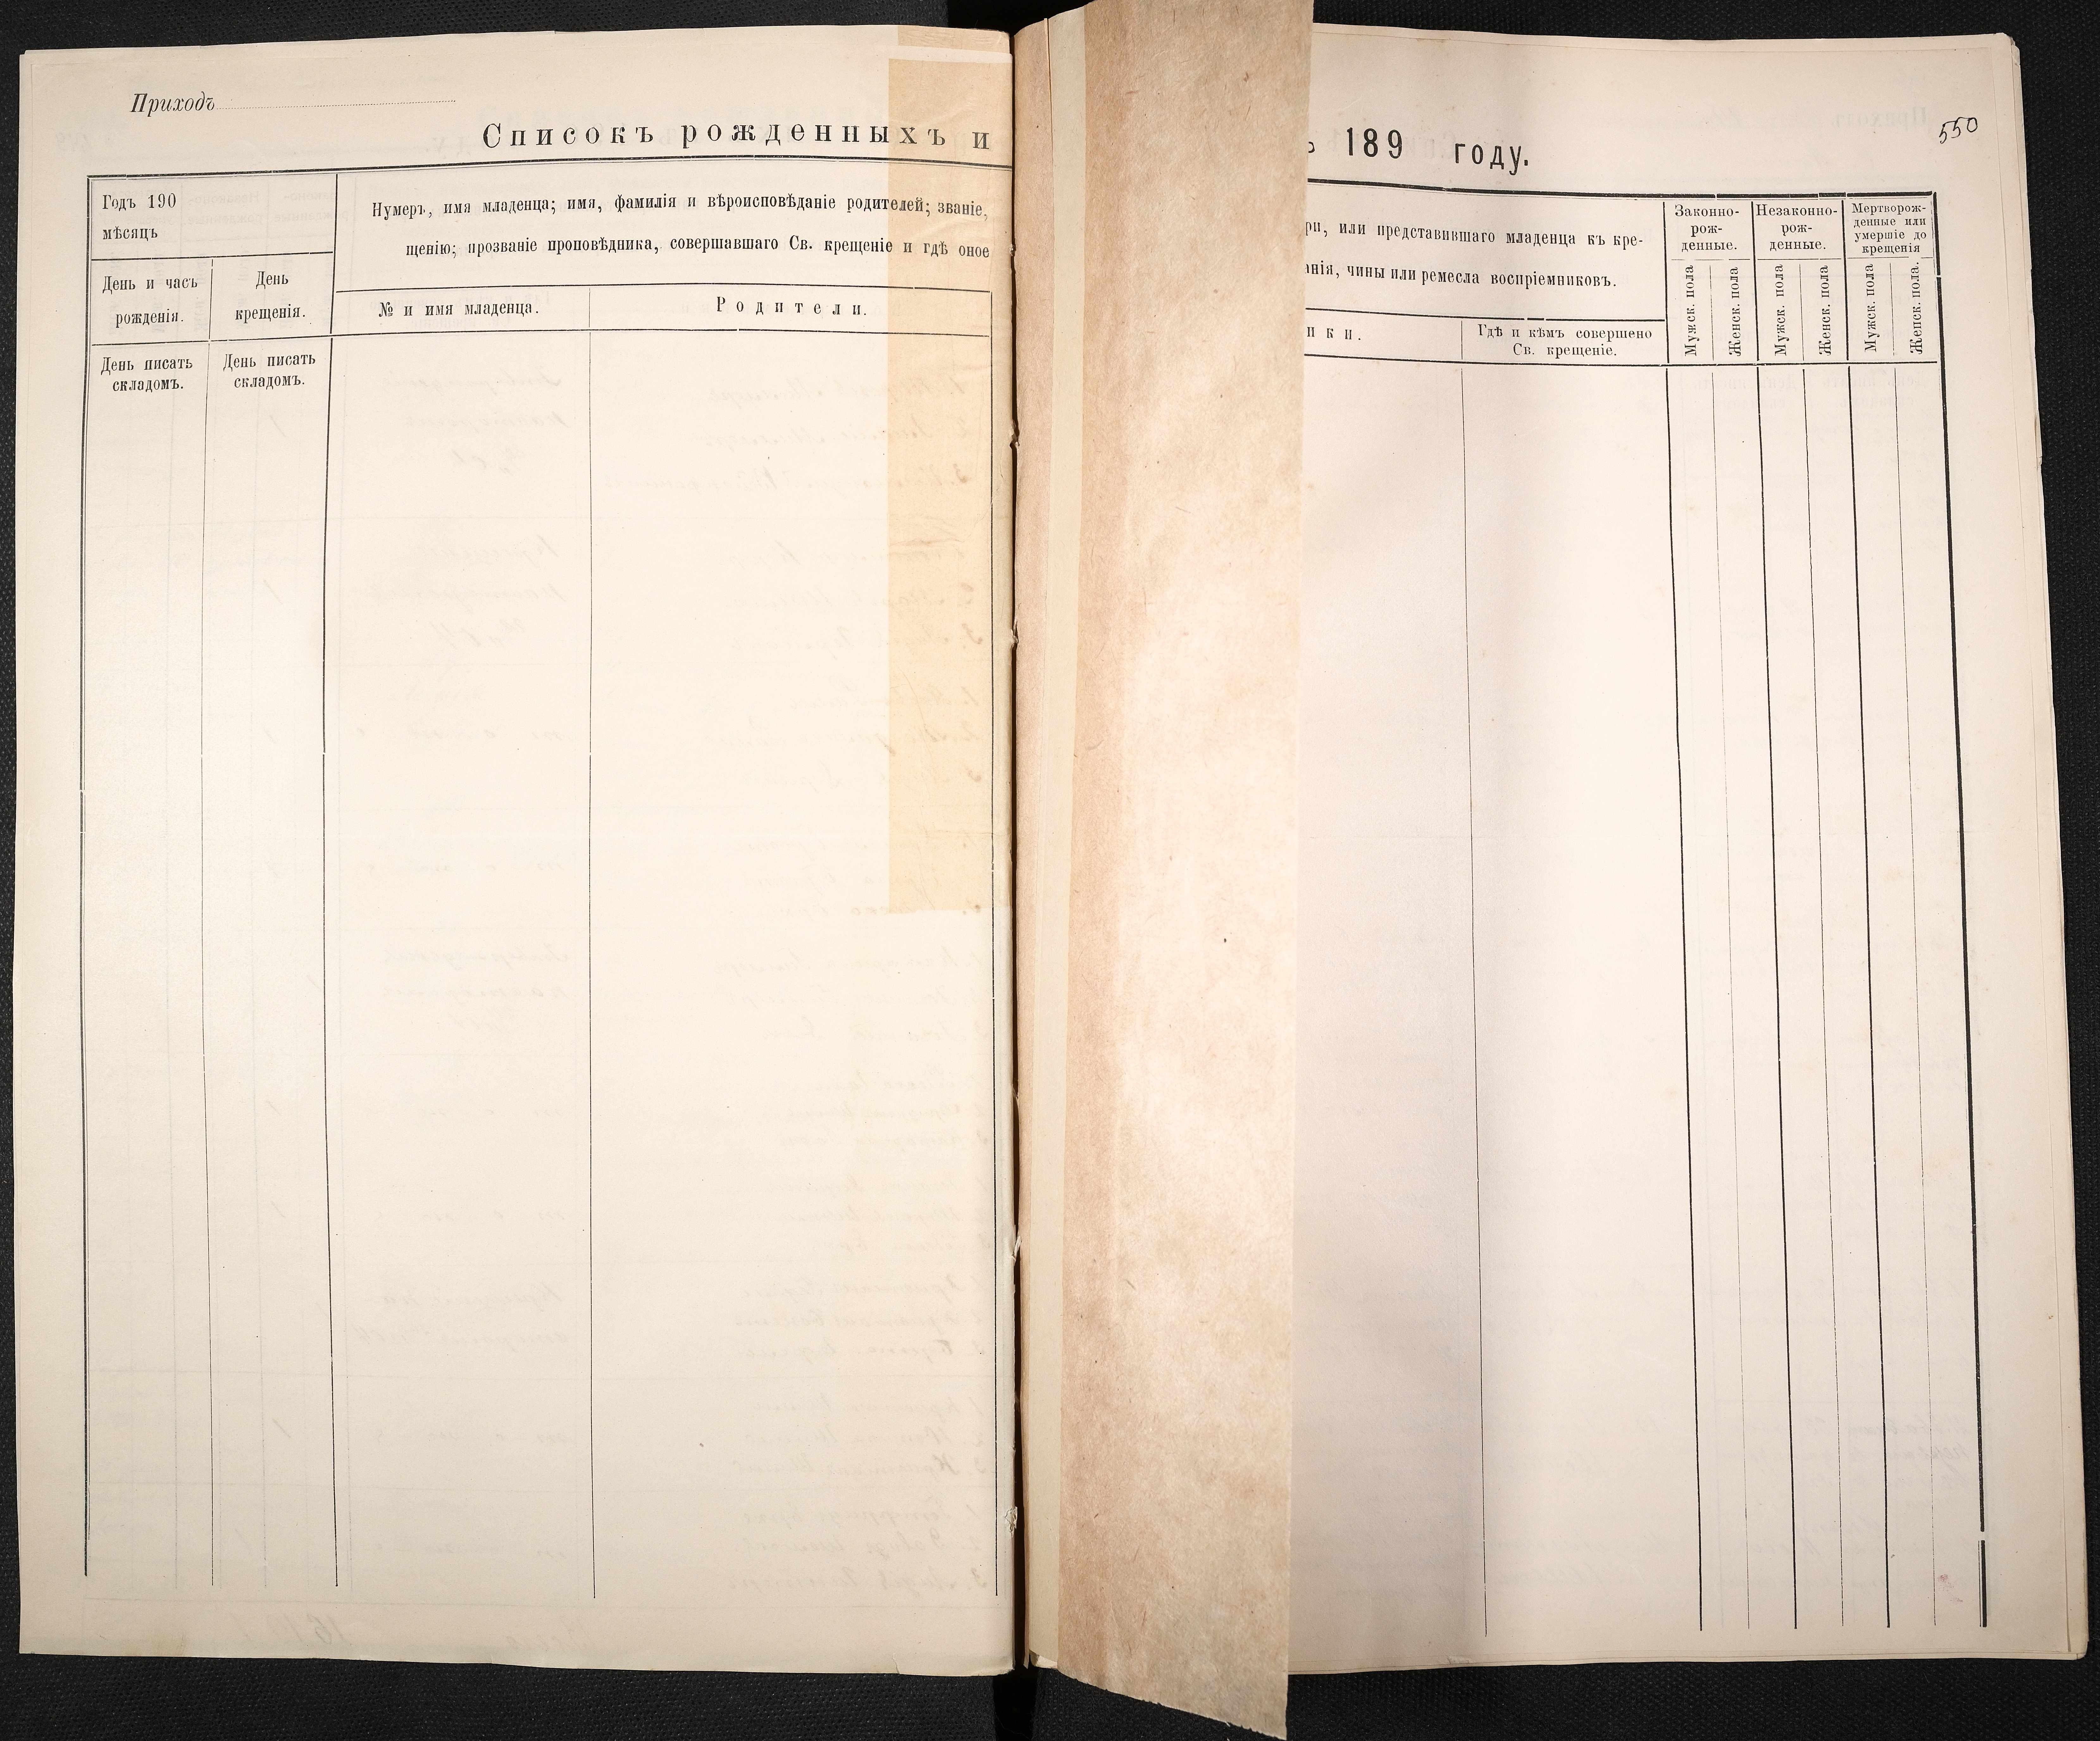 Приходъ
Списокъ рожденныхъ и
Годъ 190
мѣсяцъ
Нумеръ, имя младенца; имя, фамилія и вѣроисповѣданіе родителей; званіе,
щенію; прозваніе проповѣдника, совершавшаго Св. крещеніе и гдѣ оное
День и часъ
рожденія.
День
крещенія.
№ и имя младенца.
Родители.
День писать
складомъ.
День писать
складомъ.
550
ъ 189 году.
ри, или представившаго младенца къ кре-
анія, чины или ремесла воспріемниковъ.
ики.
Гдѣ и кѣмъ совершено
Св. крещеніе.
Законно-
рож-
денные.
Незаконно-
рож-
денные.
Мертворож-
денные или
умершіе до
крещенія
Мужск. пола
Женск. пола
Мужск. пола
Женск. пола
Мужск. пола
Женск. пола.